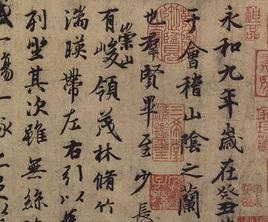 永和九年歲在癸丑
于會稽山陰之蘭
也群賢畢至少長
崇山
有峻領茂林脩竹
湍暎帶左右引以
列坐其次雖無絲
觴一詠